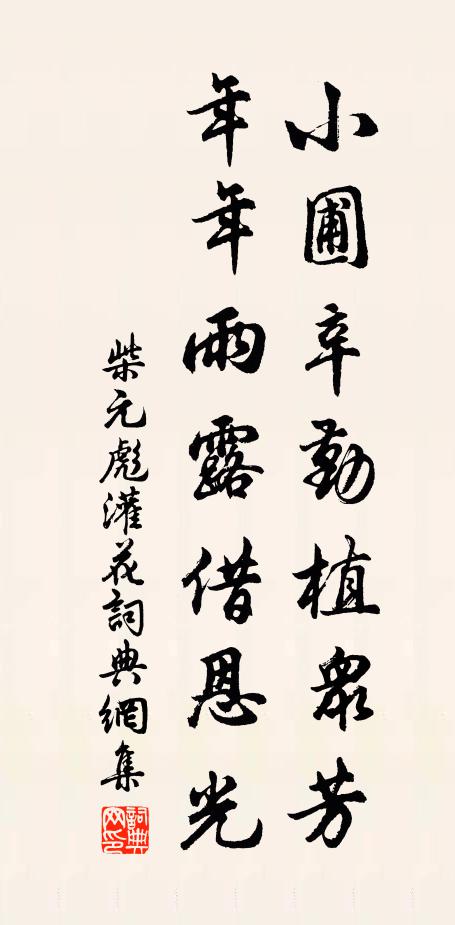 小圃辛勤植衆芳
年年雨露借恩光
柴元彪灌花詞典網集
詞典網印